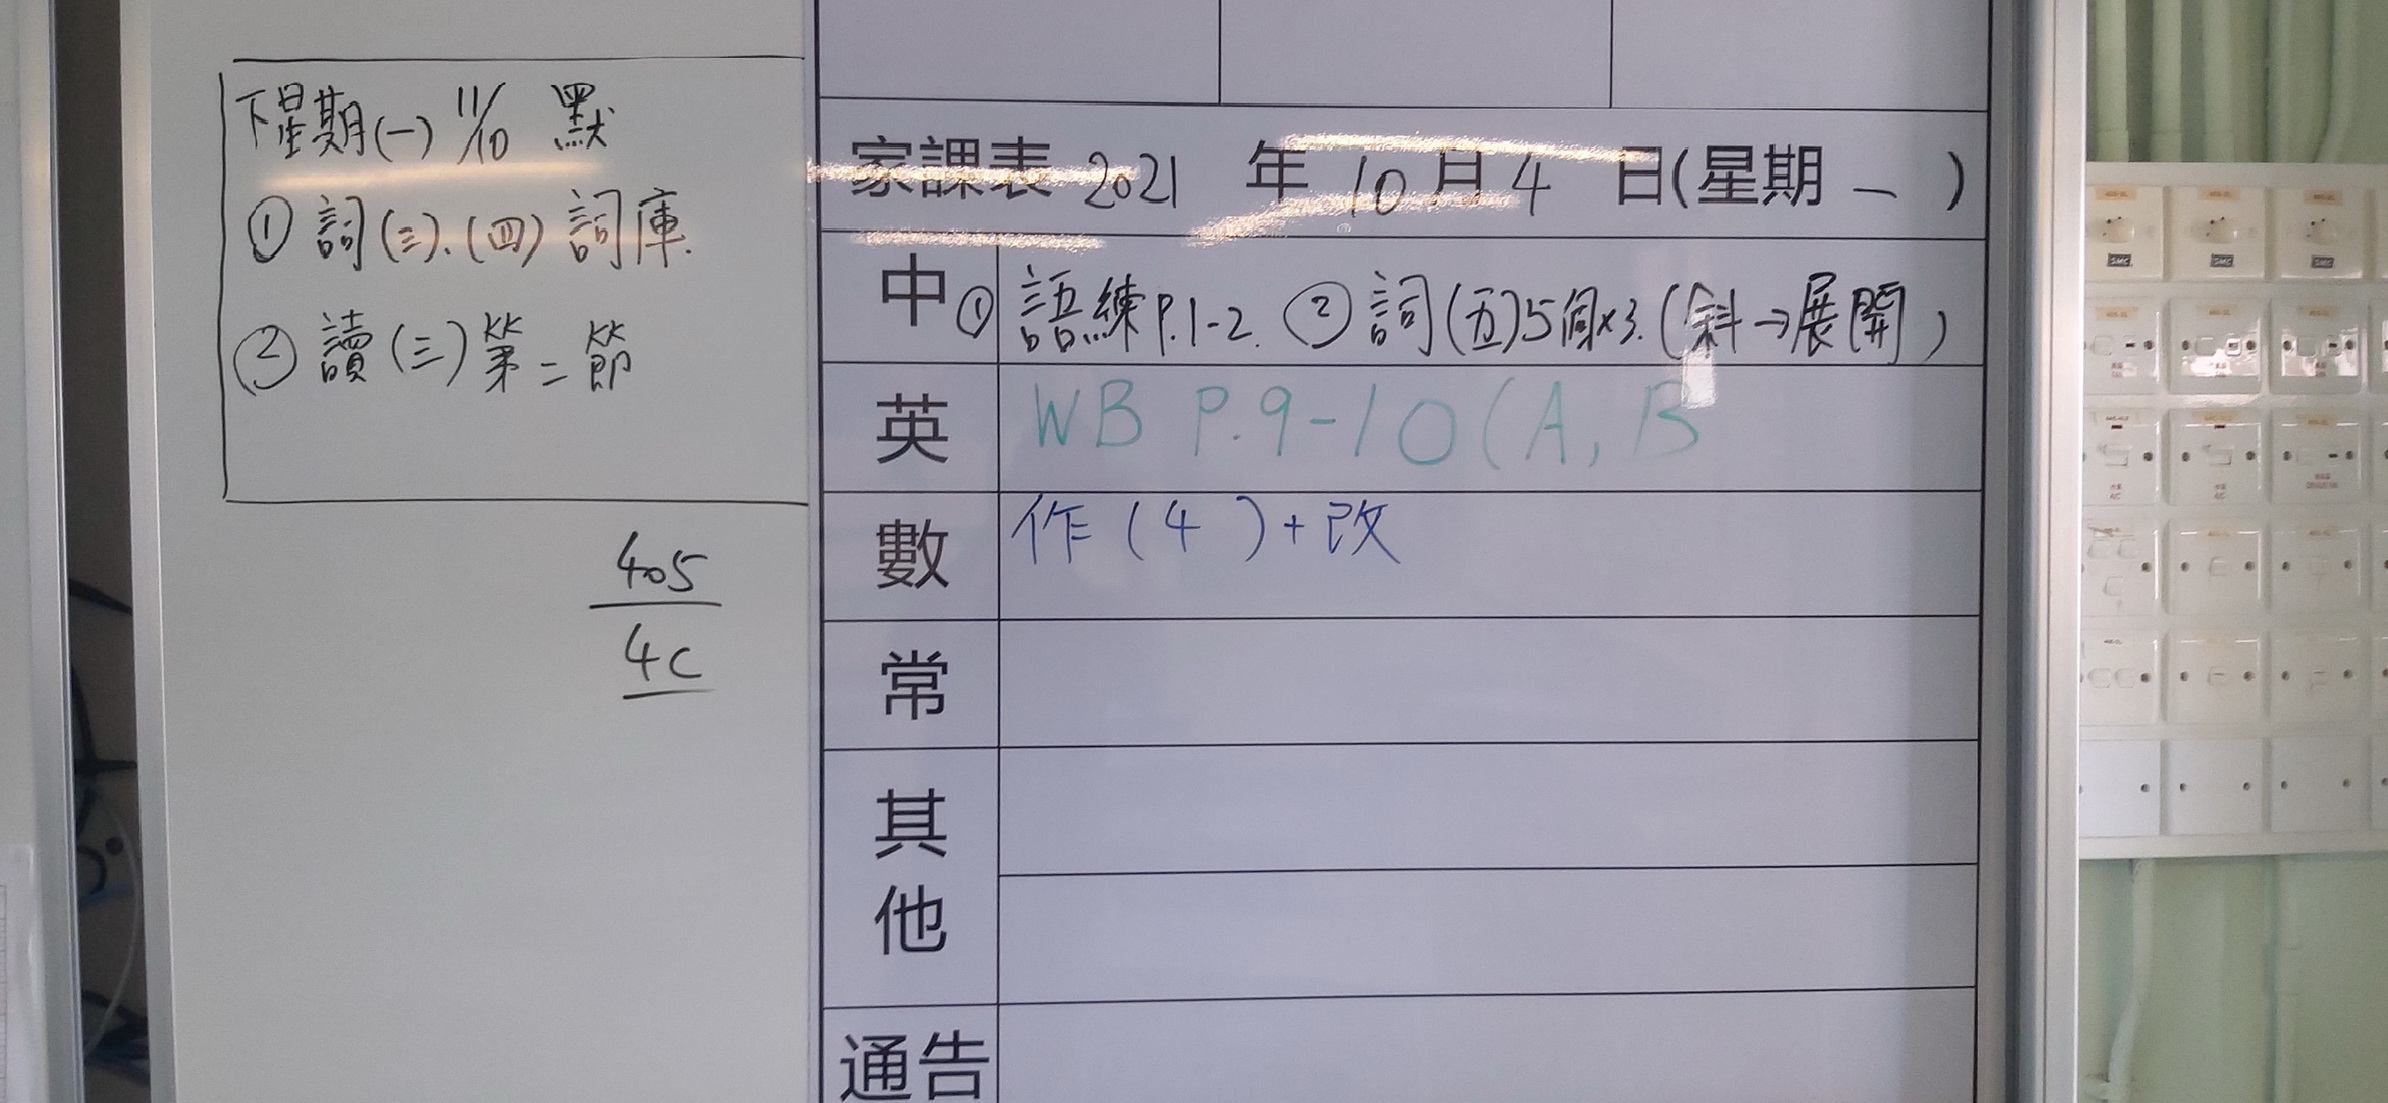 下星期(一) 11/10 默
① 詞(三).(四) 詞庫.
② 讀(三)第二節
405
4C
家課表 2021 年 10 月 4 日(星期 一 )
中 ① 語練P.1-2. ② 詞(五)5個x3.(斜→展開)
英 WB P.9-10(A, B
數 作(4)+改
常
其他
通告